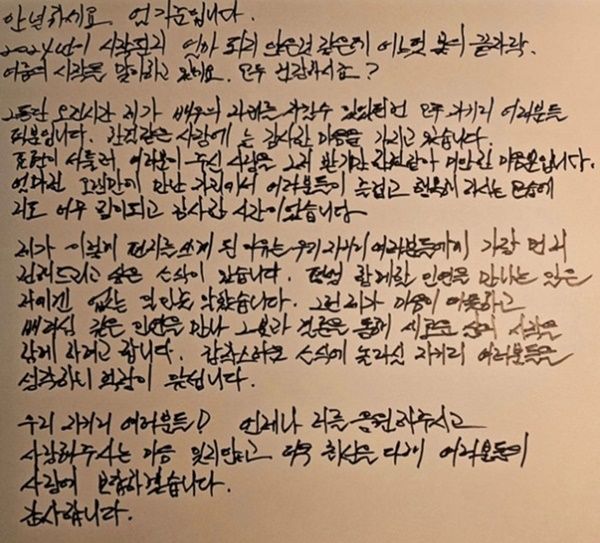 안녕하세요 엄기준입니다.
2024년이 시작된지 얼마 되지 않은것 같은데 어느덧 봄의 끝자락,
여름의 시작을 맞이하고 있네요. 모두 건강하시죠?
그동안 오랜시간 제가 배우의 자리를 지킬수 있었던건 모두 자기리 여러분들
덕분입니다. 한결같은 사랑에 늘 감사한 마음을 가지고 있습니다.
표현이 서툴러 여러분이 주신 사랑을 그저 받기만 한것같아 미안한 마음뿐입니다.
얼마전 오랜만에 만난 자리에서 여러분들이 즐겁고 행복해 하시는 모습에
저도 너무 힘이되고 감사한 시간이었습니다
제가 이렇게 편지를 쓰게 된 이유는 우리 자기리 여러분들께 가장 먼저
전해드리고 싶은 소식이 있습니다. 평생 함께할 인연을 만나는 일은
저에겐 없는 알았습니다. 그런 제가 마음이 따뜻하고
배려심 깊은 인연을 만나 그분과 결혼을 통해 새로운 삶의 시작을
함께 하려고 합니다. 갑작스러운 소식에 놀라실 자기리 여러분들을
생각하니 걱정이
우리 자기리 여러분들! 언제나 저를 응원해주시고
사랑해주시는 마음 잊지않고 더욱 최선을 다해 여러분들의
사랑에 보답하겠습니다.
감사합니다.